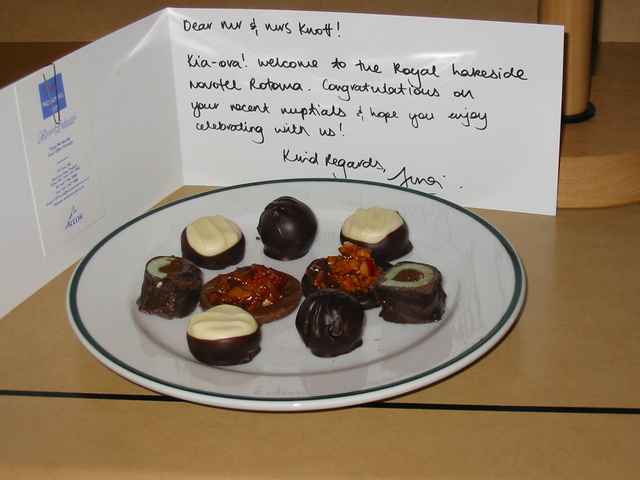 Dear Mr & Mrs Knott!
Kia-ora! Welcome to the Royal Lakeside
Novotel Rotorua. Congratulations on
your recent nuptials & hope you enjoy
celebrating with us!
Kind Regards,
NOVOTEL
ACCOR